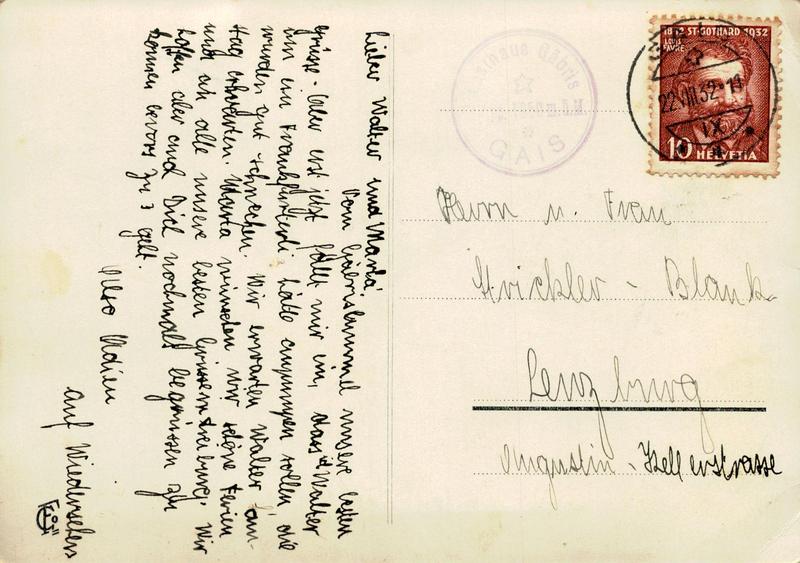 Lieber Walter und Marta,
Vom Gäbrisbummel unsere besten
Grüsse. Aber erst jetzt fällt mir ein, dass Walter
ihm ein Frankfurterli hätte anpumpen sollen, die
würden gut schmecken. Wir erwarten Walter Sam-
stag Marta wünschen wir schöne Ferien
und an alle unsere besten Grüsse Wir
hoffen aber auch Dich nochmals begrüssen zu
können bevor's zu geht.
Also Adieu
auf Wiedersehen
GAIS
1882 ST-GOTHARD 1932
LOUIS FAVRE
10 HELVETIA
22.VIII.32
IX
Herrn u. Frau
Strickler - Blank
Lenzburg
Augustin - Kellerstrasse